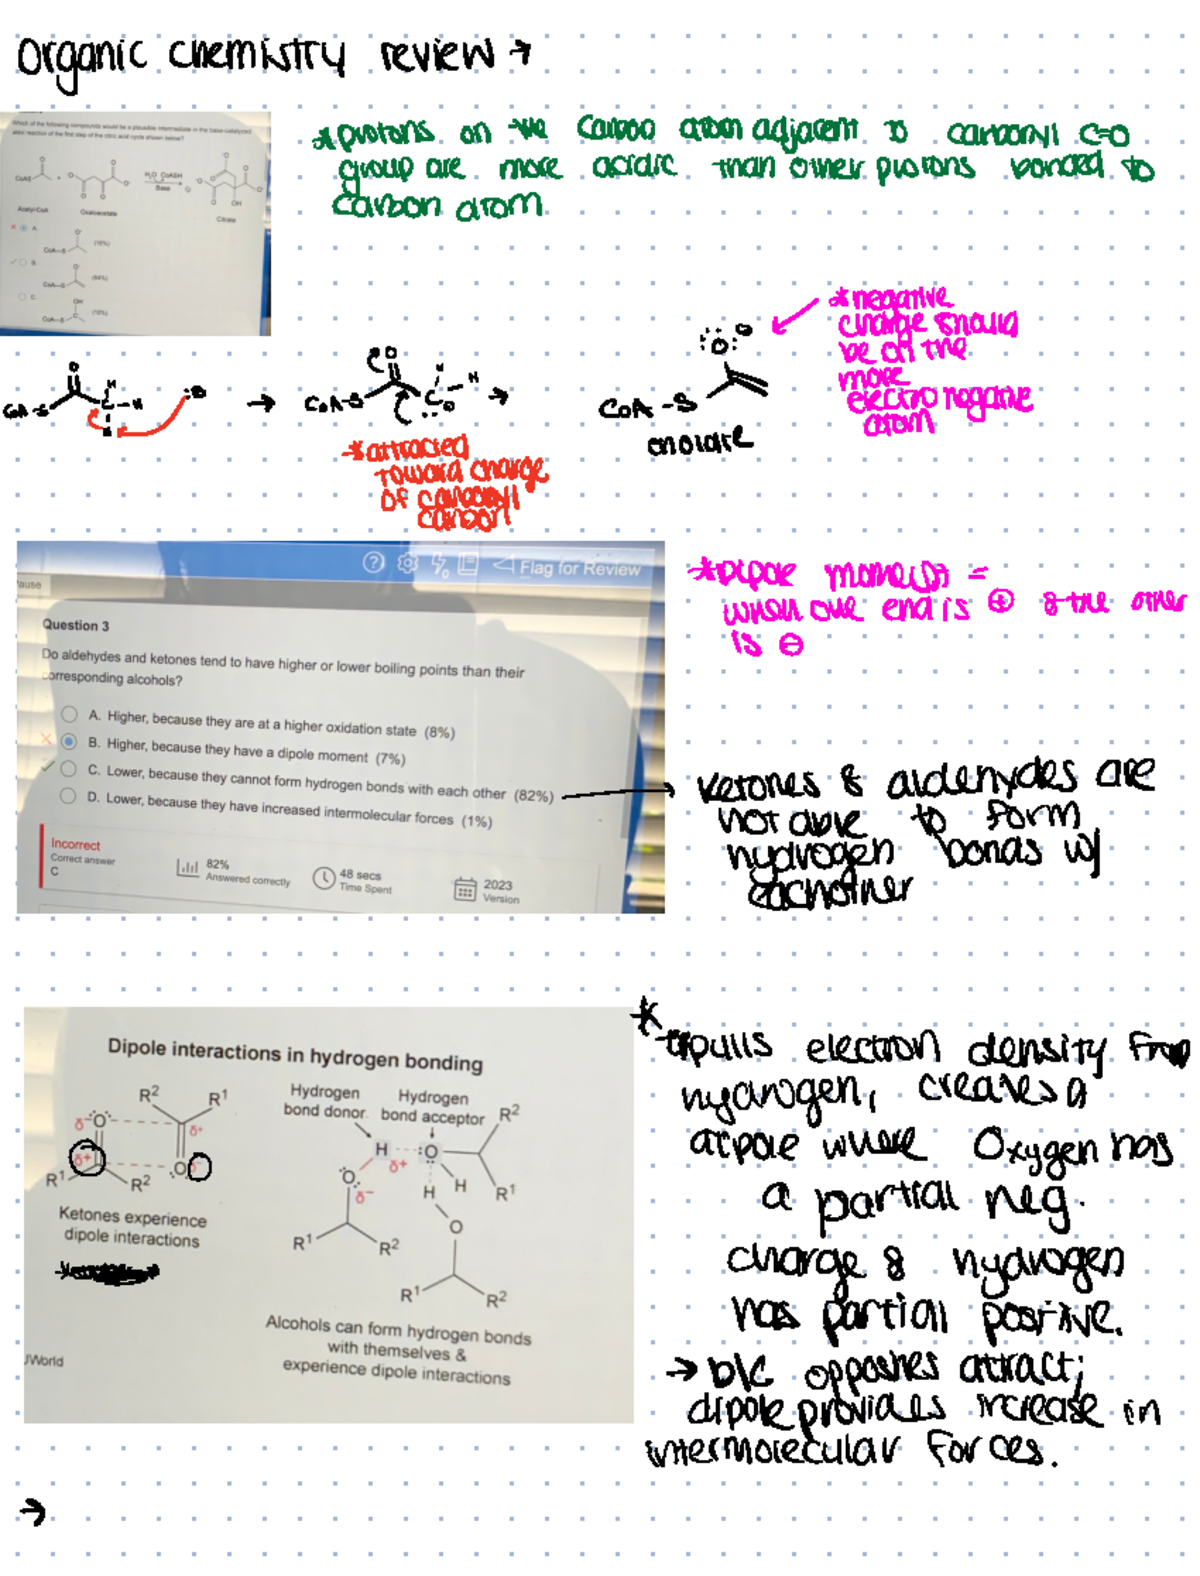 Organic chemistry review →
Which of the following compounds would be a plausible intermediate in the base-catalyzed
aldol reaction of the first step of the citric acid cycle shown below?
CoAS
+
H₂O CoASH
Base
OH
Acetyl-CoA
Oxaloacetate
Citrate
A.
CoA-S
B.
CoA-S
C.
OH
CoA-S
*protons on the carbon atom adjacent to carbonyl C=O
group are more acidic than other protons bonded to
carbon atom
*negative
charge should
be on the
more
electronegative
atom
CoA-S
→
CoA-S
→
CoA-S
enolate
*attracted
toward charge
of carbonyl
carbon
Flag for Review
ause
Question 3
Do aldehydes and ketones tend to have higher or lower boiling points than their
corresponding alcohols?
A. Higher, because they are at a higher oxidation state (8%)
B. Higher, because they have a dipole moment (7%)
C. Lower, because they cannot form hydrogen bonds with each other (82%)
D. Lower, because they have increased intermolecular forces (1%)
Incorrect
Correct answer
C
82%
Answered correctly
48 secs
Time Spent
2023
Version
*Dipole moment =
when one end is ⊕ & the other
is ⊖
Ketones & aldehydes are
not able to form
hydrogen bonds w/
eachother
Dipole interactions in hydrogen bonding
Hydrogen
bond donor
Hydrogen
bond acceptor
R² R¹
δ- O
δ+
δ+
O δ-
R¹ R²
Ketones experience
dipole interactions
H O R²
δ+
O δ- H H R¹
R¹ R² O
R¹ R²
Alcohols can form hydrogen bonds
with themselves &
experience dipole interactions
UWorld
*
pulls electron density from
hydrogen, creates a
dipole where Oxygen has
a partial neg.
charge & hydrogen
has partial positive.
→ b/c opposites attract;
dipole provides increase in
intermolecular forces.
→